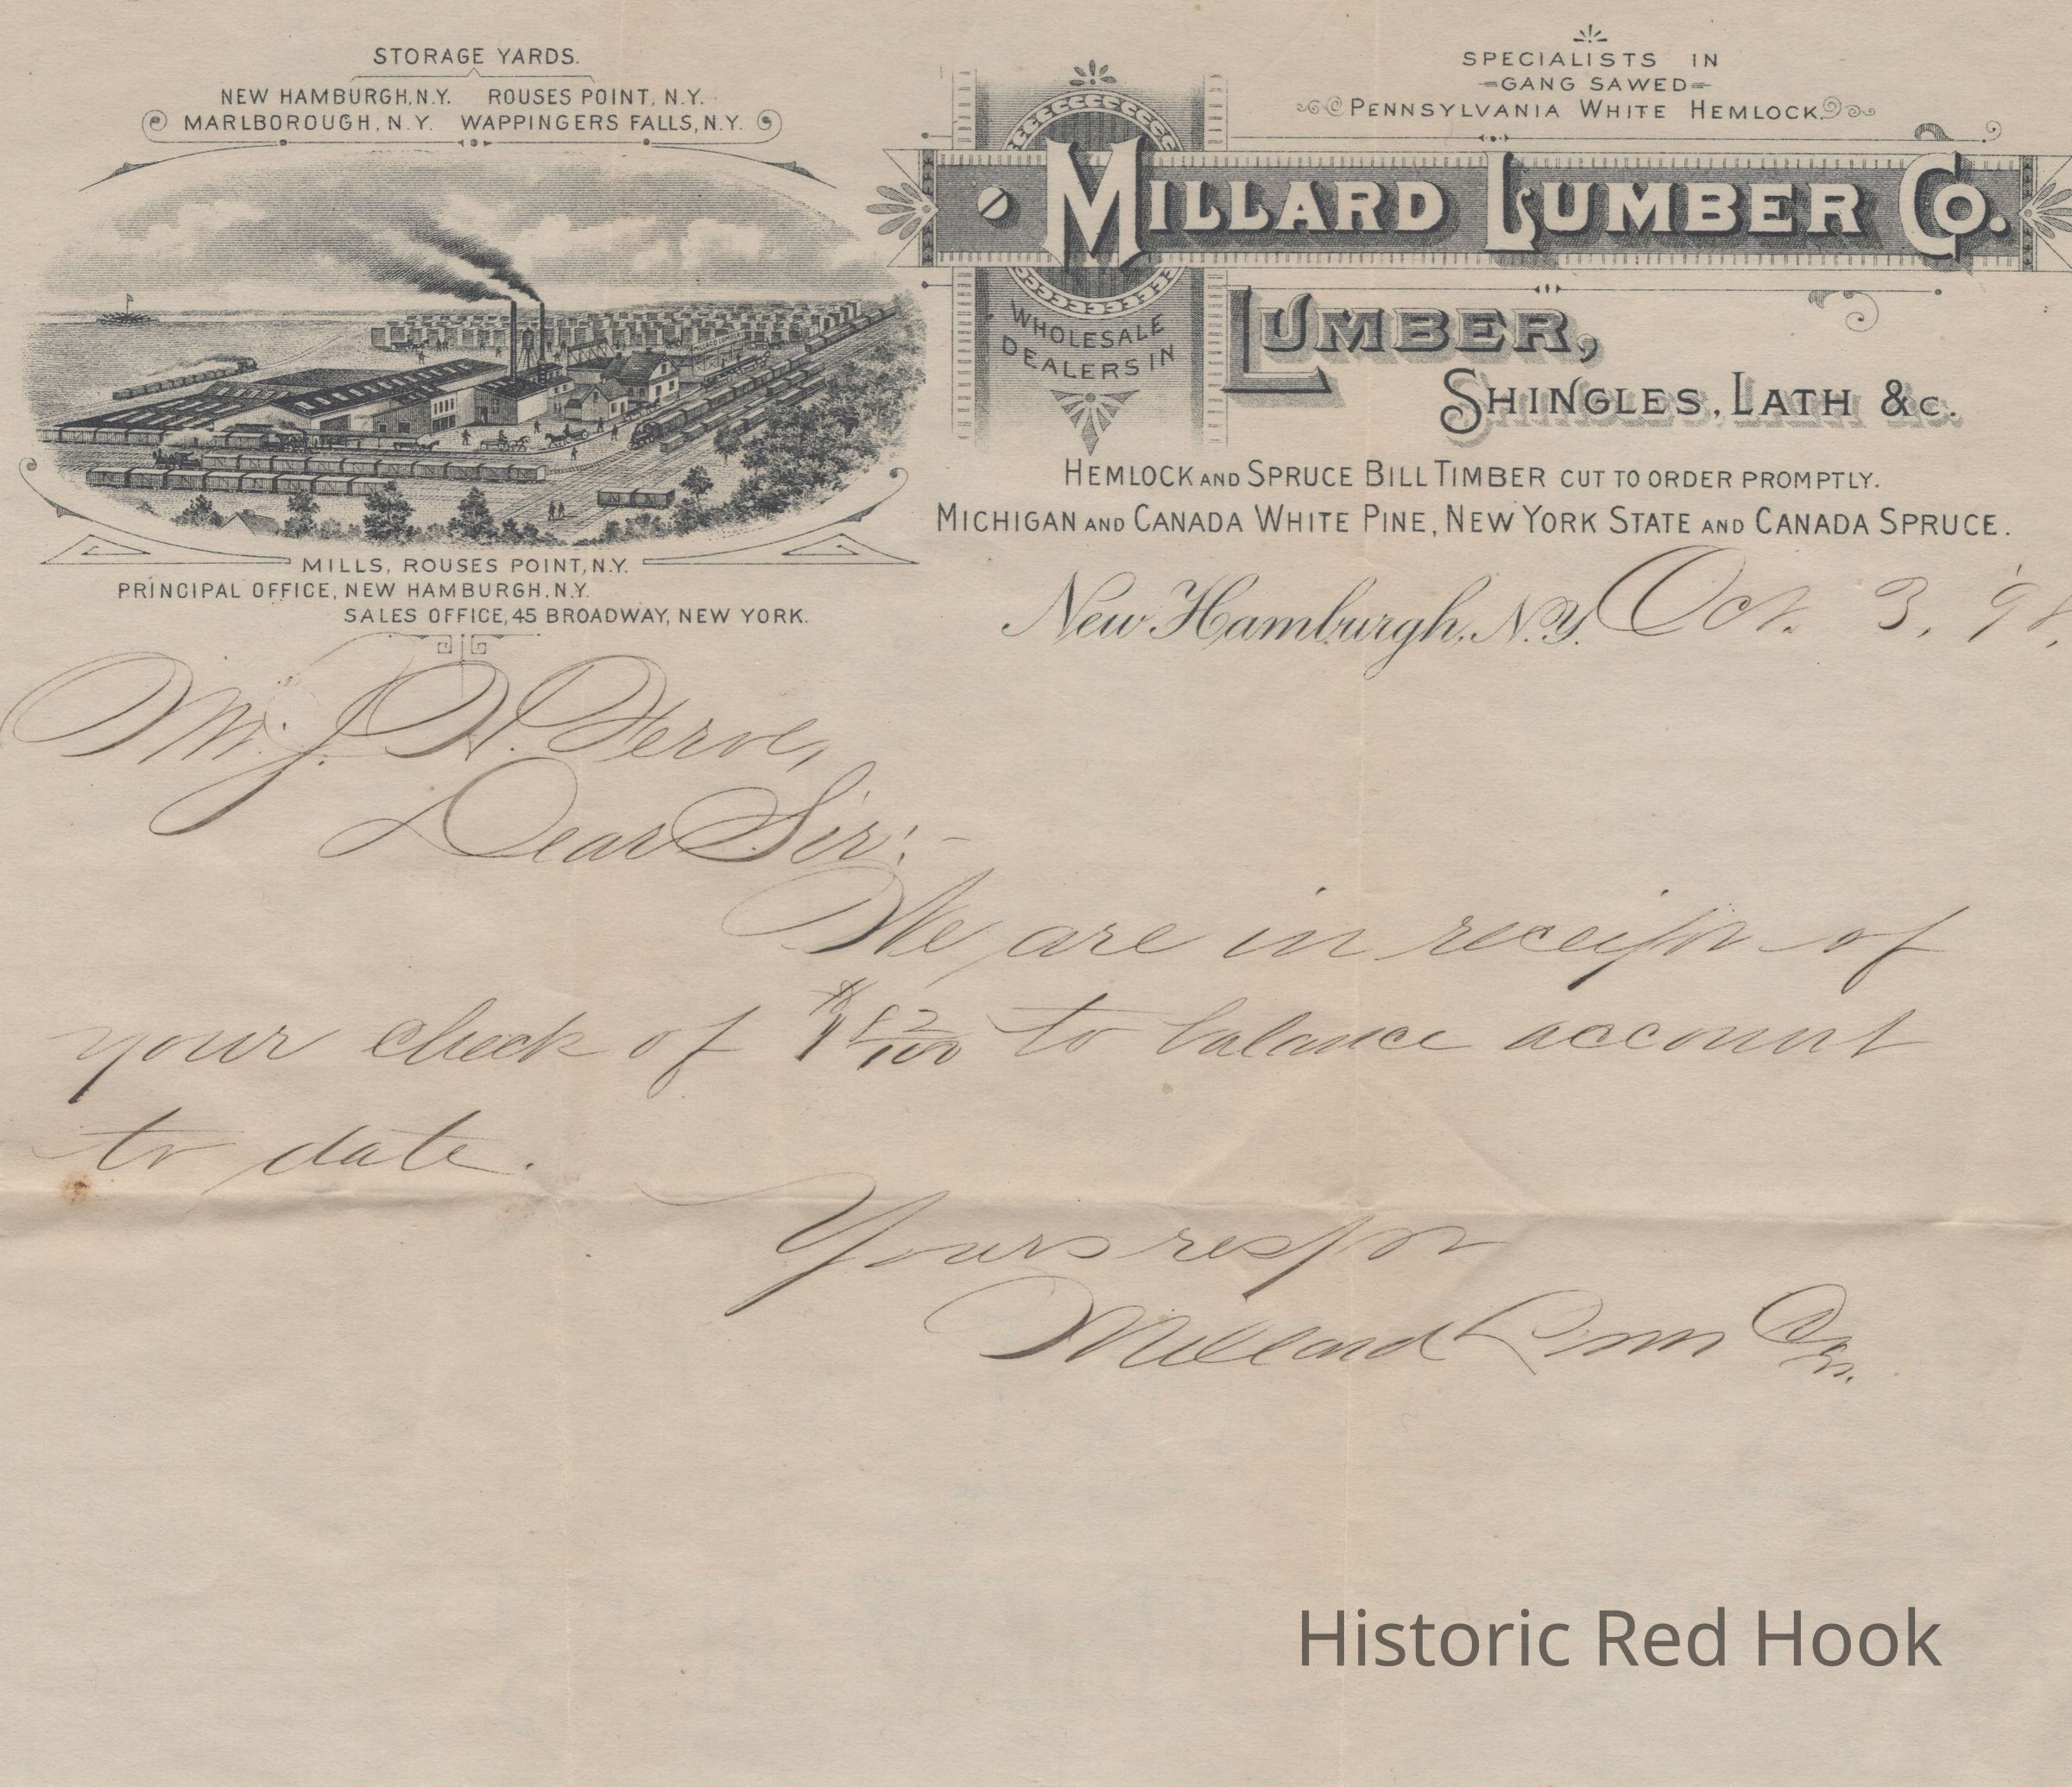 STORAGE YARDS.
NEW HAMBURGH, N.Y. ROUSES POINT, N.Y.
MARLBOROUGH, N.Y. WAPPINGERS FALLS, N.Y.
SPECIALISTS IN
GANG SAWED
PENNSYLVANIA WHITE HEMLOCK.
MILLARD LUMBER CO.
WHOLESALE
DEALERS IN
LUMBER,
SHINGLES, LATH &c.
HEMLOCK AND SPRUCE BILL TIMBER CUT TO ORDER PROMPTLY.
MICHIGAN AND CANADA WHITE PINE, NEW YORK STATE AND CANADA SPRUCE.
MILLS, ROUSES POINT, N.Y.
PRINCIPAL OFFICE, NEW HAMBURGH, N.Y.
SALES OFFICE, 45 BROADWAY, NEW YORK.
New Hamburgh, N.Y. Oct. 3,
Mr. J.
Dear Sir:-
We are in receipt of
your check of to balance account
to date.
Yours respt
Millard Lum Co.
Historic Red Hook